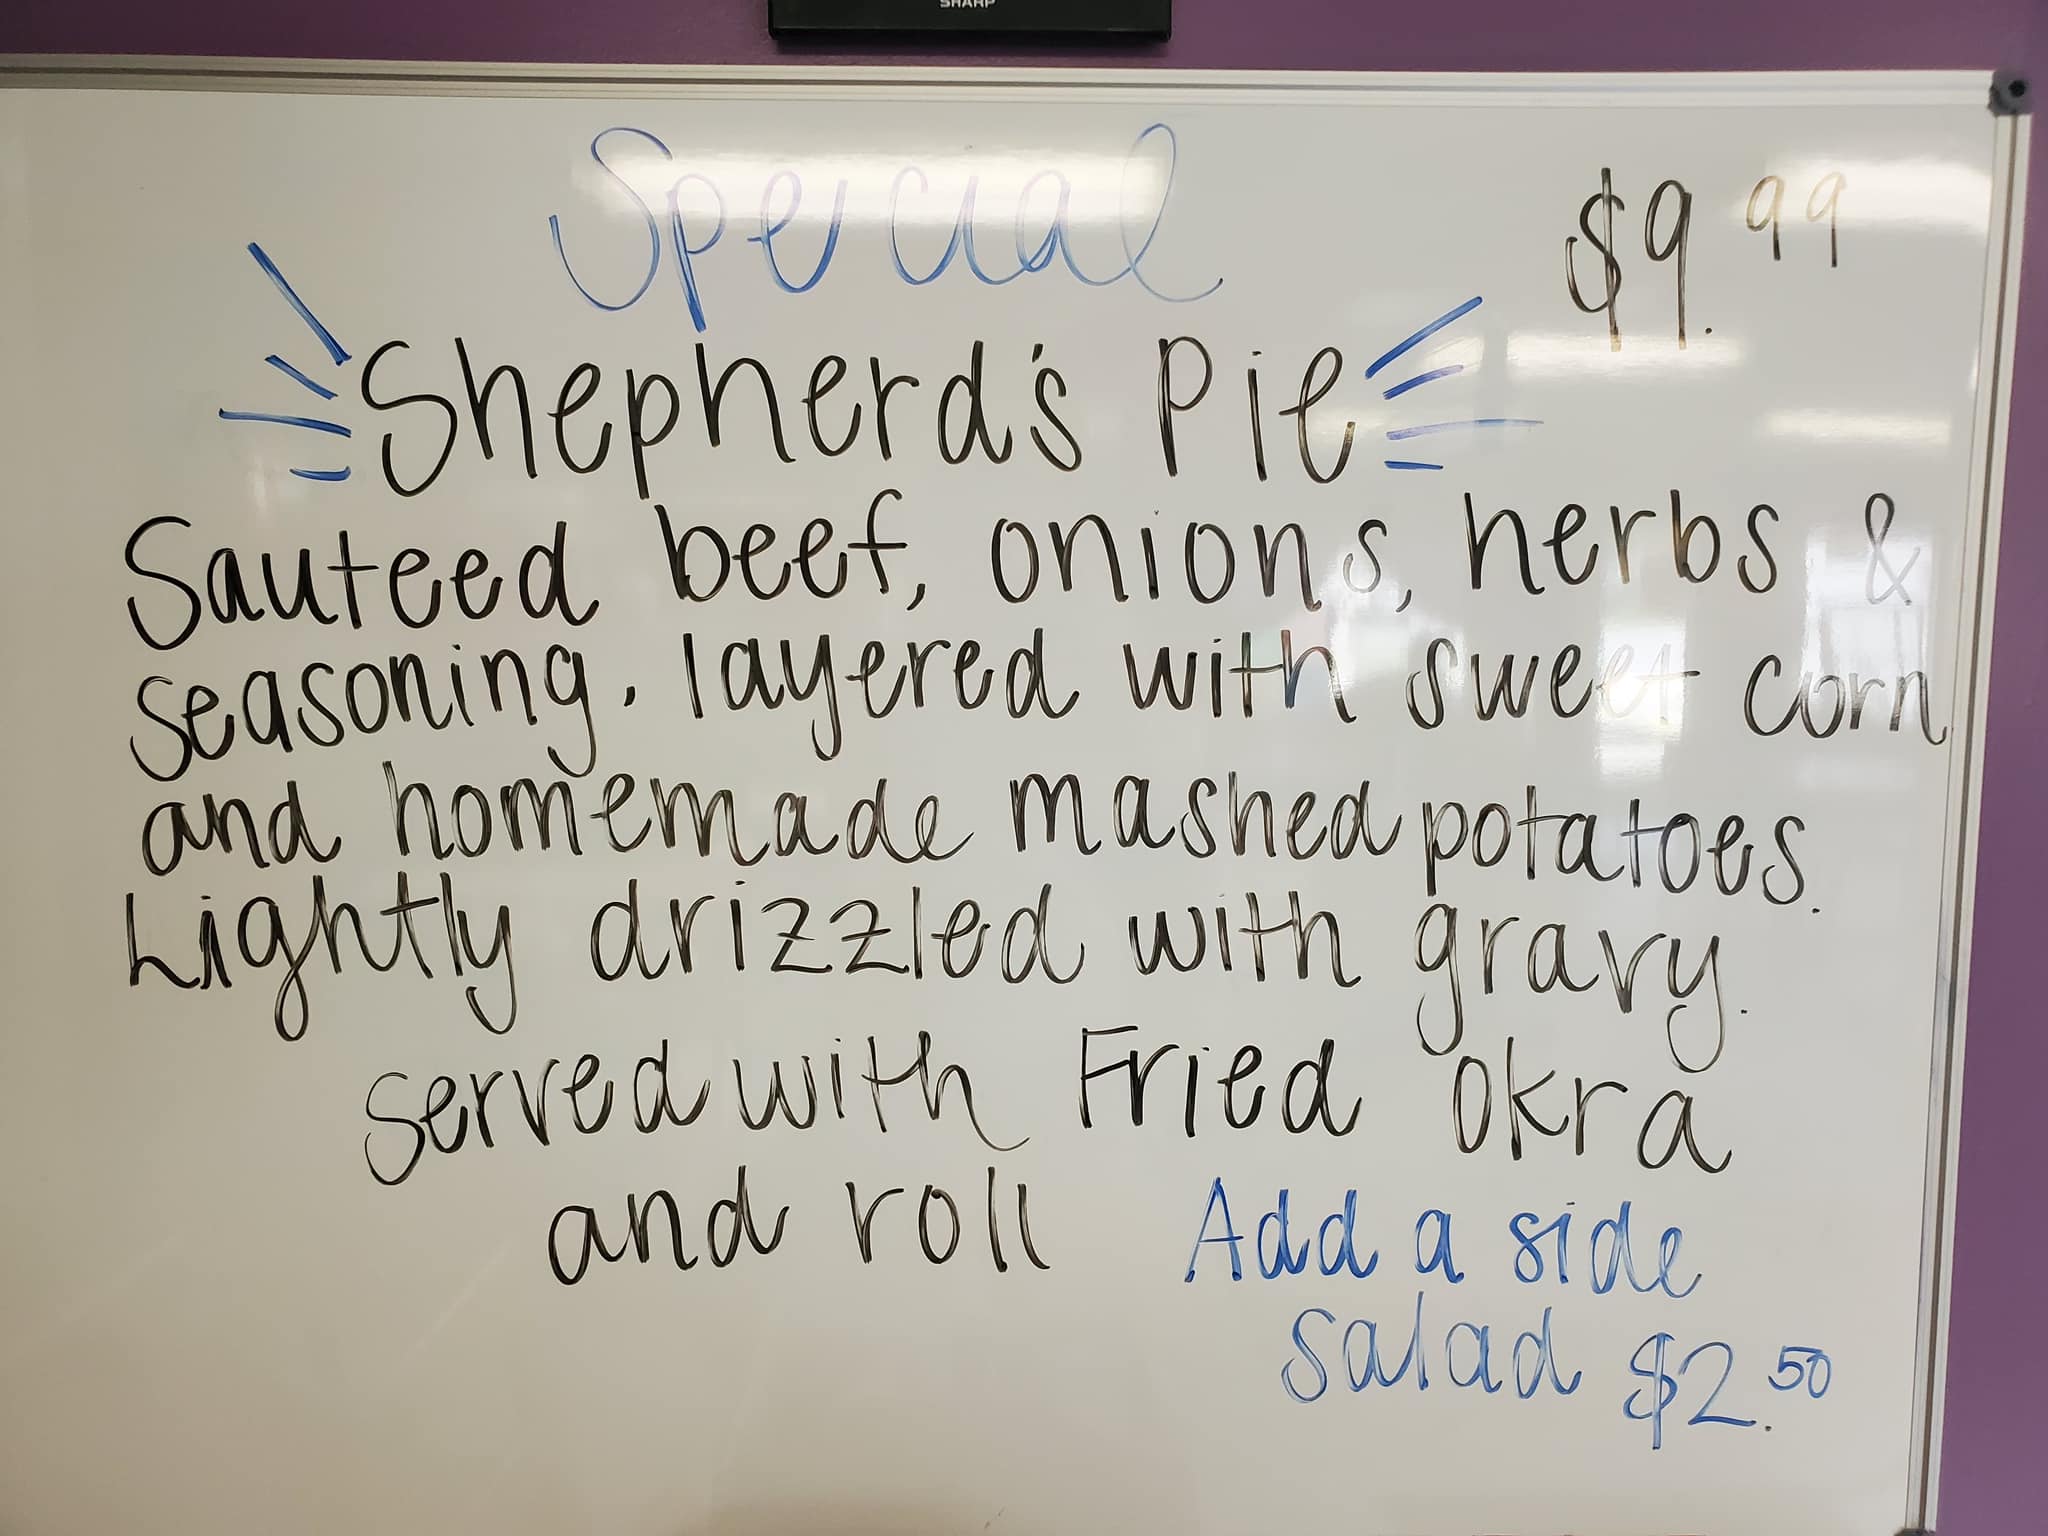 SHARP
Special
$9.99
Shepherd's Pie
Sauteed beef, onions, herbs &
seasoning. layered with sweet corn
and homemade mashed potatoes.
Lightly drizzled with gravy.
served with Fried okra
and roll
Add a side
salad $2.50